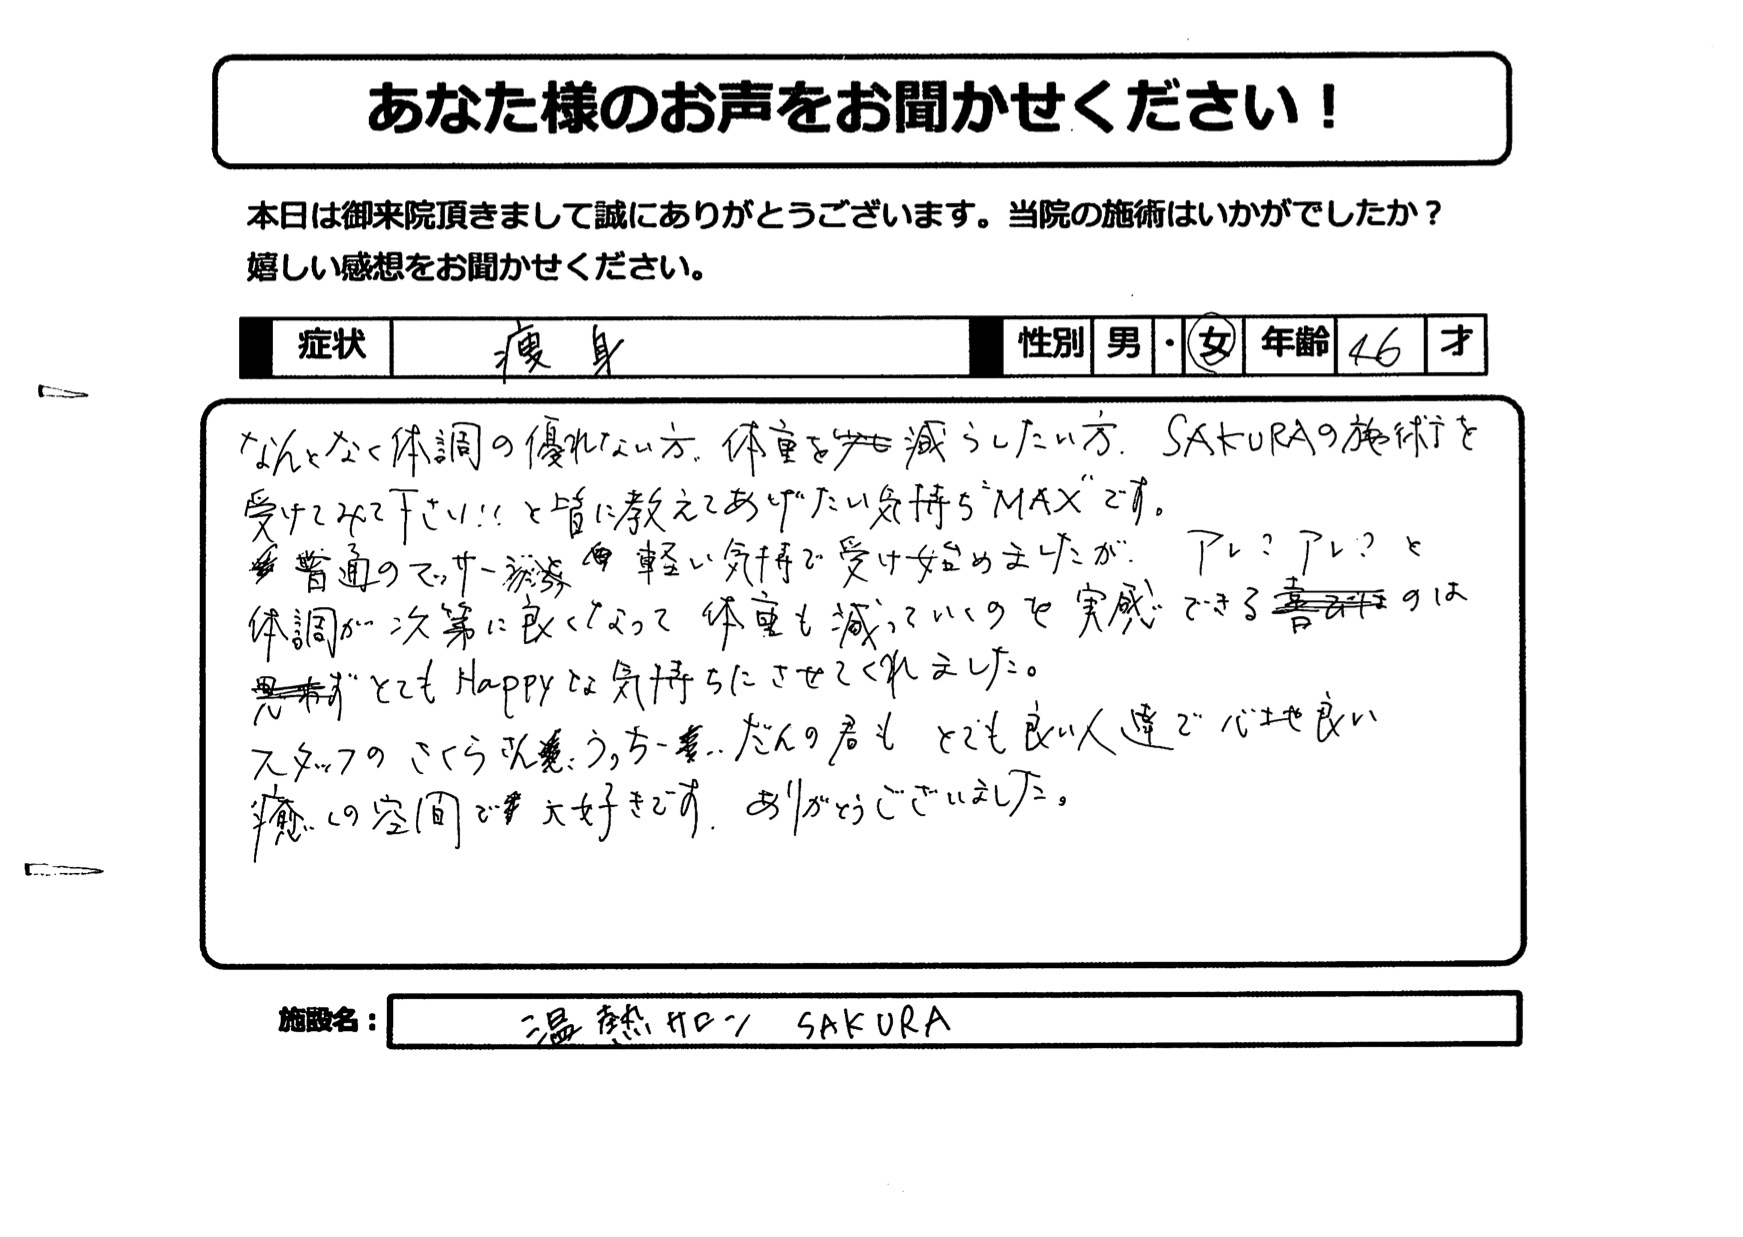 あなた様のお声をお聞かせください！
本日は御来院頂きまして誠にありがとうございます。当院の施術はいかがでしたか？
嬉しい感想をお聞かせください。
症状 痩身 性別 男・女 年齢 46 才
なんとなく体調の優れない方、体重を減らしたい方、SAKURAの施術を
受けてみて下さい!!と皆に教えてあげたい気持ち"MAX"です。
普通のマッサージ 軽い気持で受け始めましたが、アレ？アレ？と
体調が次第に良くなって体重も減っていくのを実感できるのは
とてもHappyな気持ちにさせてくれました。
スタッフのさくらさん、うっちー、だんの君もとても良い人達で心地良い
癒しの空間で大好きです。ありがとうございました。
施設名： 温熱サロン SAKURA